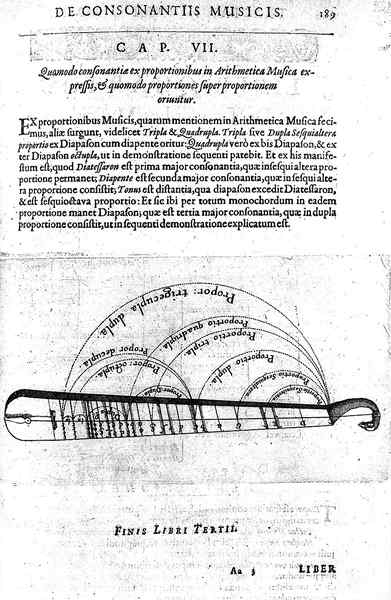 DE CONSONANTIIS MUSICIS. 189
CAP. VII.
Quomodo consonantiæ ex proportionibus in Arithmetica Musica ex-
pressis, & quomodo proportiones super proportionem
oriuntur.
EX proportionibus Musicis, quarum mentionem in Arithmetica Musica feci-
mus, aliæ surgunt, videlicet Tripla & Quadrupla. Tripla sive Dupla Sesquialtera
proportio ex Diapason cum diapente oritur: Quadrupla verò ex bis Diapason, & ex
ter Diapason octupla, ut in demonstratione sequenti patebit. Et ex his manife-
stum est, quod Diatessaron est prima major consonantia, quæ in sesqui altera pro-
portione permanet; Diapente est secunda major consonantia, quæ in sesqui alte-
ra proportione consistit; Tonus est distantia, qua diapason excedit Diatessaron,
& est sesquioctava proportio: Et sic ibi per totum monochordum in eadem
proportione manet Diapason; quæ est tertia major consonantia, quæ in dupla
proportione consistit, ut in sequenti demonstratione explicatum est.
Propor: trigecupla dupla.
Proportio quadrupla.
Proportio tripla.
Propor decupla.
Propor: octupla.
Proportio dupla.
Propor: Dupla
FINIS LIBRI TERTII.
Aa 3 LIBER